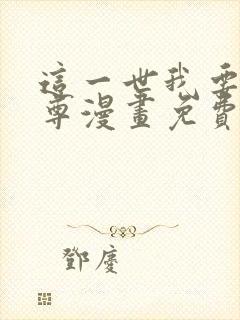 這一世我要
尊漫畫免費
鄧慶